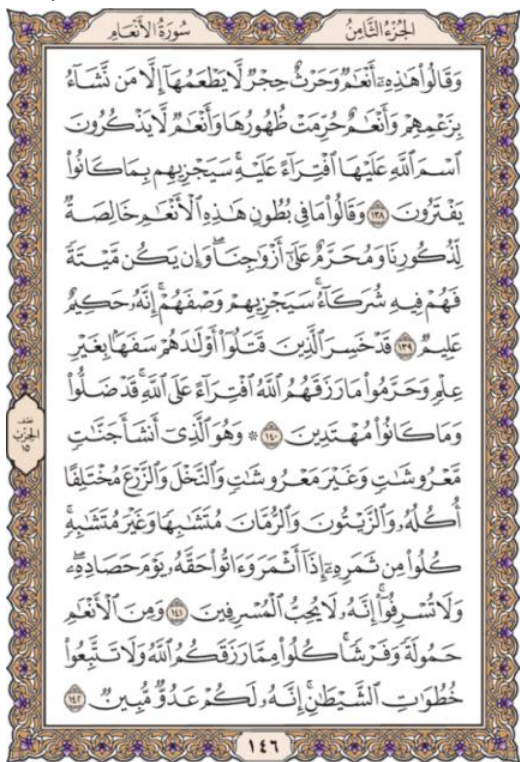 الجُزْءُ الثَّامِنُ
سُورَةُ الأَنْعَامِ
وَقَالُوا۟ هَـٰذِهِۦٓ أَنْعَـٰمٌ وَحَرْثٌ حِجْرٌ لَّا يَطْعَمُهَآ إِلَّا مَن نَّشَآءُ
بِزَعْمِهِمْ وَأَنْعَـٰمٌ حُرِّمَتْ ظُهُورُهَا وَأَنْعَـٰمٌ لَّا يَذْكُرُونَ
ٱسْمَ ٱللَّهِ عَلَيْهَا ٱفْتِرَآءً عَلَيْهِ ۚ سَيَجْزِيهِم بِمَا كَانُوا۟
يَفْتَرُونَ ١٣٨ وَقَالُوا۟ مَا فِى بُطُونِ هَـٰذِهِ ٱلْأَنْعَـٰمِ خَالِصَةٌ
لِّذُكُورِنَا وَمُحَرَّمٌ عَلَىٰٓ أَزْوَٰجِنَا ۖ وَإِن يَكُن مَّيْتَةً
فَهُمْ فِيهِ شُرَكَآءُ ۚ سَيَجْزِيهِمْ وَصْفَهُمْ ۚ إِنَّهُۥ حَكِيمٌ
عَلِيمٌ ١٣٩ قَدْ خَسِرَ ٱلَّذِينَ قَتَلُوٓا۟ أَوْلَـٰدَهُمْ سَفَهًۢا بِغَيْرِ
عِلْمٍ وَحَرَّمُوا۟ مَا رَزَقَهُمُ ٱللَّهُ ٱفْتِرَآءً عَلَى ٱللَّهِ ۚ قَدْ ضَلُّوا۟
وَمَا كَانُوا۟ مُهْتَدِينَ ١٤٠ ۞ وَهُوَ ٱلَّذِىٓ أَنشَأَ جَنَّـٰتٍ
مَّعْرُوشَـٰتٍ وَغَيْرَ مَعْرُوشَـٰتٍ وَٱلنَّخْلَ وَٱلزَّرْعَ مُخْتَلِفًا
أُكُلُهُۥ وَٱلزَّيْتُونَ وَٱلرُّمَّانَ مُتَشَـٰبِهًا وَغَيْرَ مُتَشَـٰبِهٍ ۚ
كُلُوا۟ مِن ثَمَرِهِۦٓ إِذَآ أَثْمَرَ وَءَاتُوا۟ حَقَّهُۥ يَوْمَ حَصَادِهِۦ ۖ
وَلَا تُسْرِفُوٓا۟ ۚ إِنَّهُۥ لَا يُحِبُّ ٱلْمُسْرِفِينَ ١٤١ وَمِنَ ٱلْأَنْعَـٰمِ
حَمُولَةً وَفَرْشًا ۚ كُلُوا۟ مِمَّا رَزَقَكُمُ ٱللَّهُ وَلَا تَتَّبِعُوا۟
خُطُوَٰتِ ٱلشَّيْطَـٰنِ ۚ إِنَّهُۥ لَكُمْ عَدُوٌّ مُّبِينٌ ١٤٢
نصف
الحزب
١٥
١٤٦